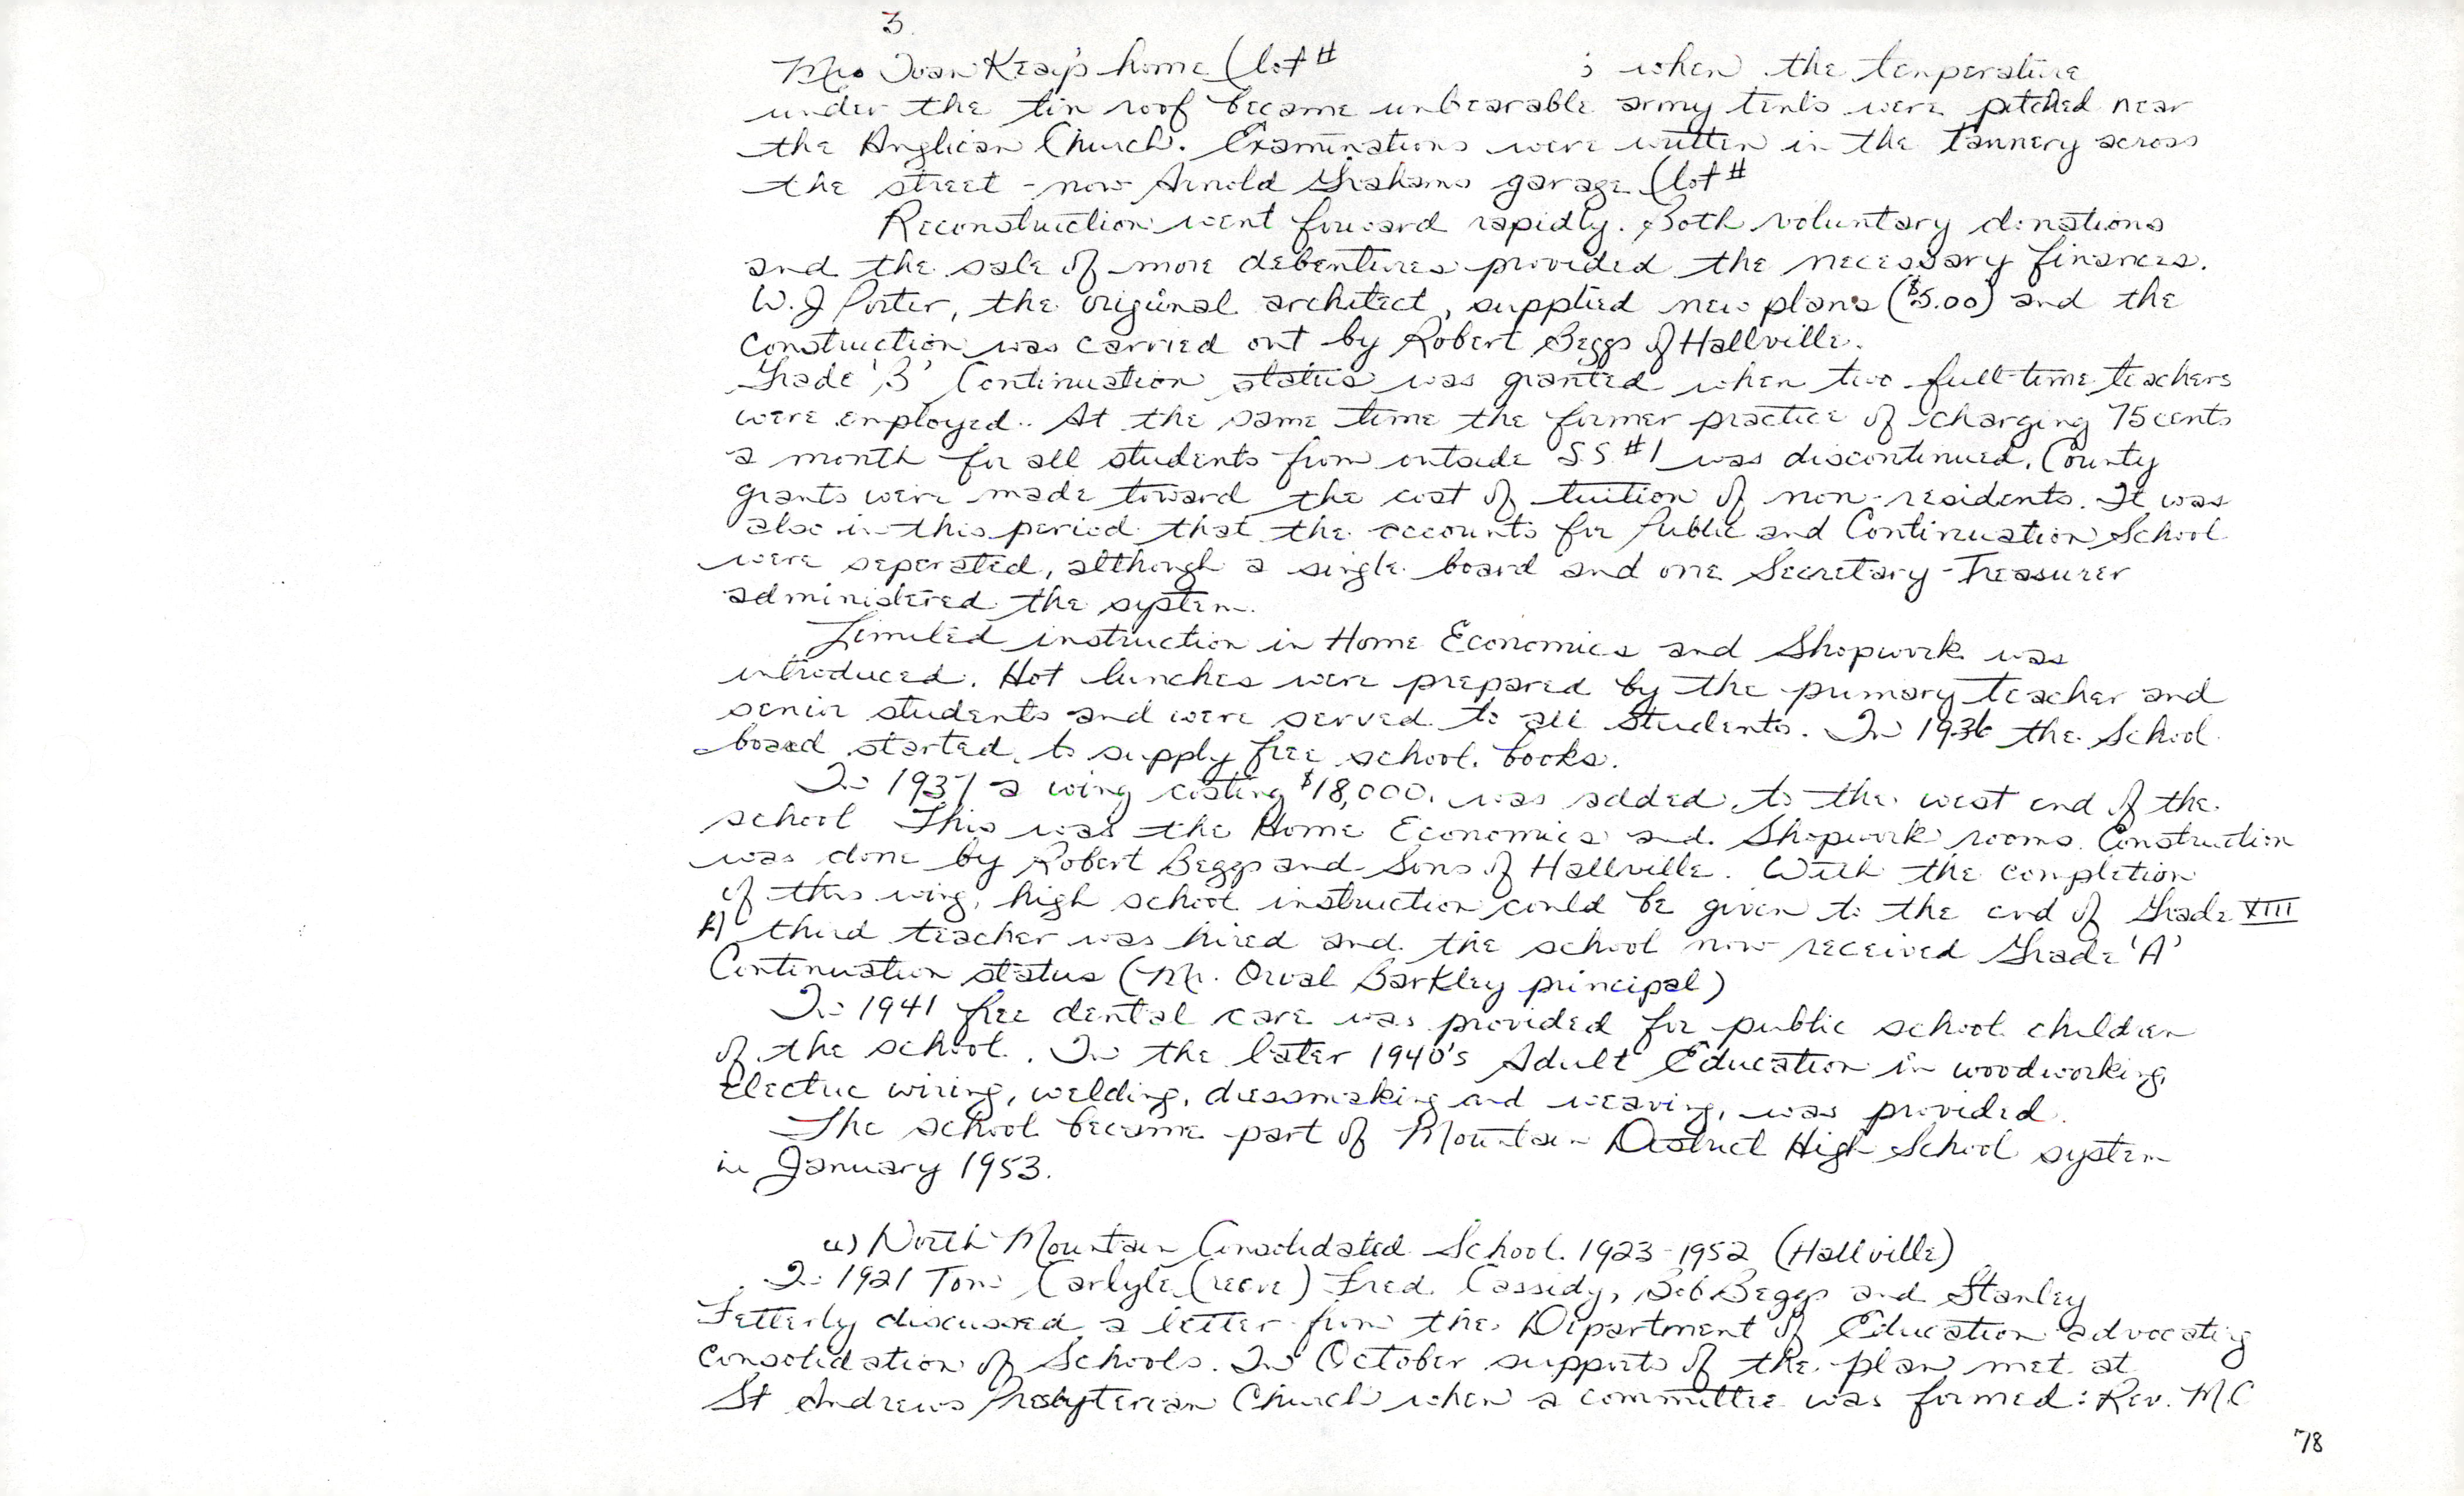 3.
Mrs Joan Keays home (lot # ; when the temperature
under the tin roof became unbearable army tents were pitched near
the Anglican Church. Examinations were written in the tannery across
the street - now Arnold Grahams garage (lot #
Reconstruction went forward rapidly. Both voluntary donations
and the sale of more debentures provided the necessary finances.
W.J Porter, the original architect, supplied new plans ($5.00) and the
construction was carried out by Robert Beggs of Hallville.
Grade 'B' Continuation status was granted when two full-time teachers
were employed. At the same time the former practice of charging 75 cents
a month for all students from outside S.S. #1 was discontinued. County
grants were made toward the cost of tuition of non-residents. It was
also in this period that the accounts for Public and Continuation School
were seperated, although a single board and one Secretary-Treasurer
administered the system.
Limited instruction in Home Economics and Shopwork was
introduced. Hot lunches were prepared by the primary teacher and
senior students and were served to all students. In 1936 the School
board started to supply free school books.
In 1937 a wing costing $18,000. was added to the west end of the
school This was the Home Economics and Shopwork rooms. Construction
was done by Robert Beggs and Sons of Hallville. With the completion
of this wing, high school instruction could be given to the end of Grade XIII
A third teacher was hired and the school now received Grade 'A'
Continuation status (Mr. Orval Barkley principal)
In 1941 free dental care was provided for public school children
of the school. In the later 1940's Adult Education in woodworking,
electric wiring, welding, dressmaking and weaving, was provided.
The school became part of Mountain District High School system
in January 1953.
North Mountain Consolidated School. 1923-1952 (Hallville)
In 1921 Tom Carlyle (reeve) Fred Cassidy, Bob Beggs and Stanley
Fetterly discussed a letter from the Department of Education advocating
Consolidation of Schools. In October supports of the plan met at
St Andrews Presbyterian Church when a committee was formed: Rev. M.C
78